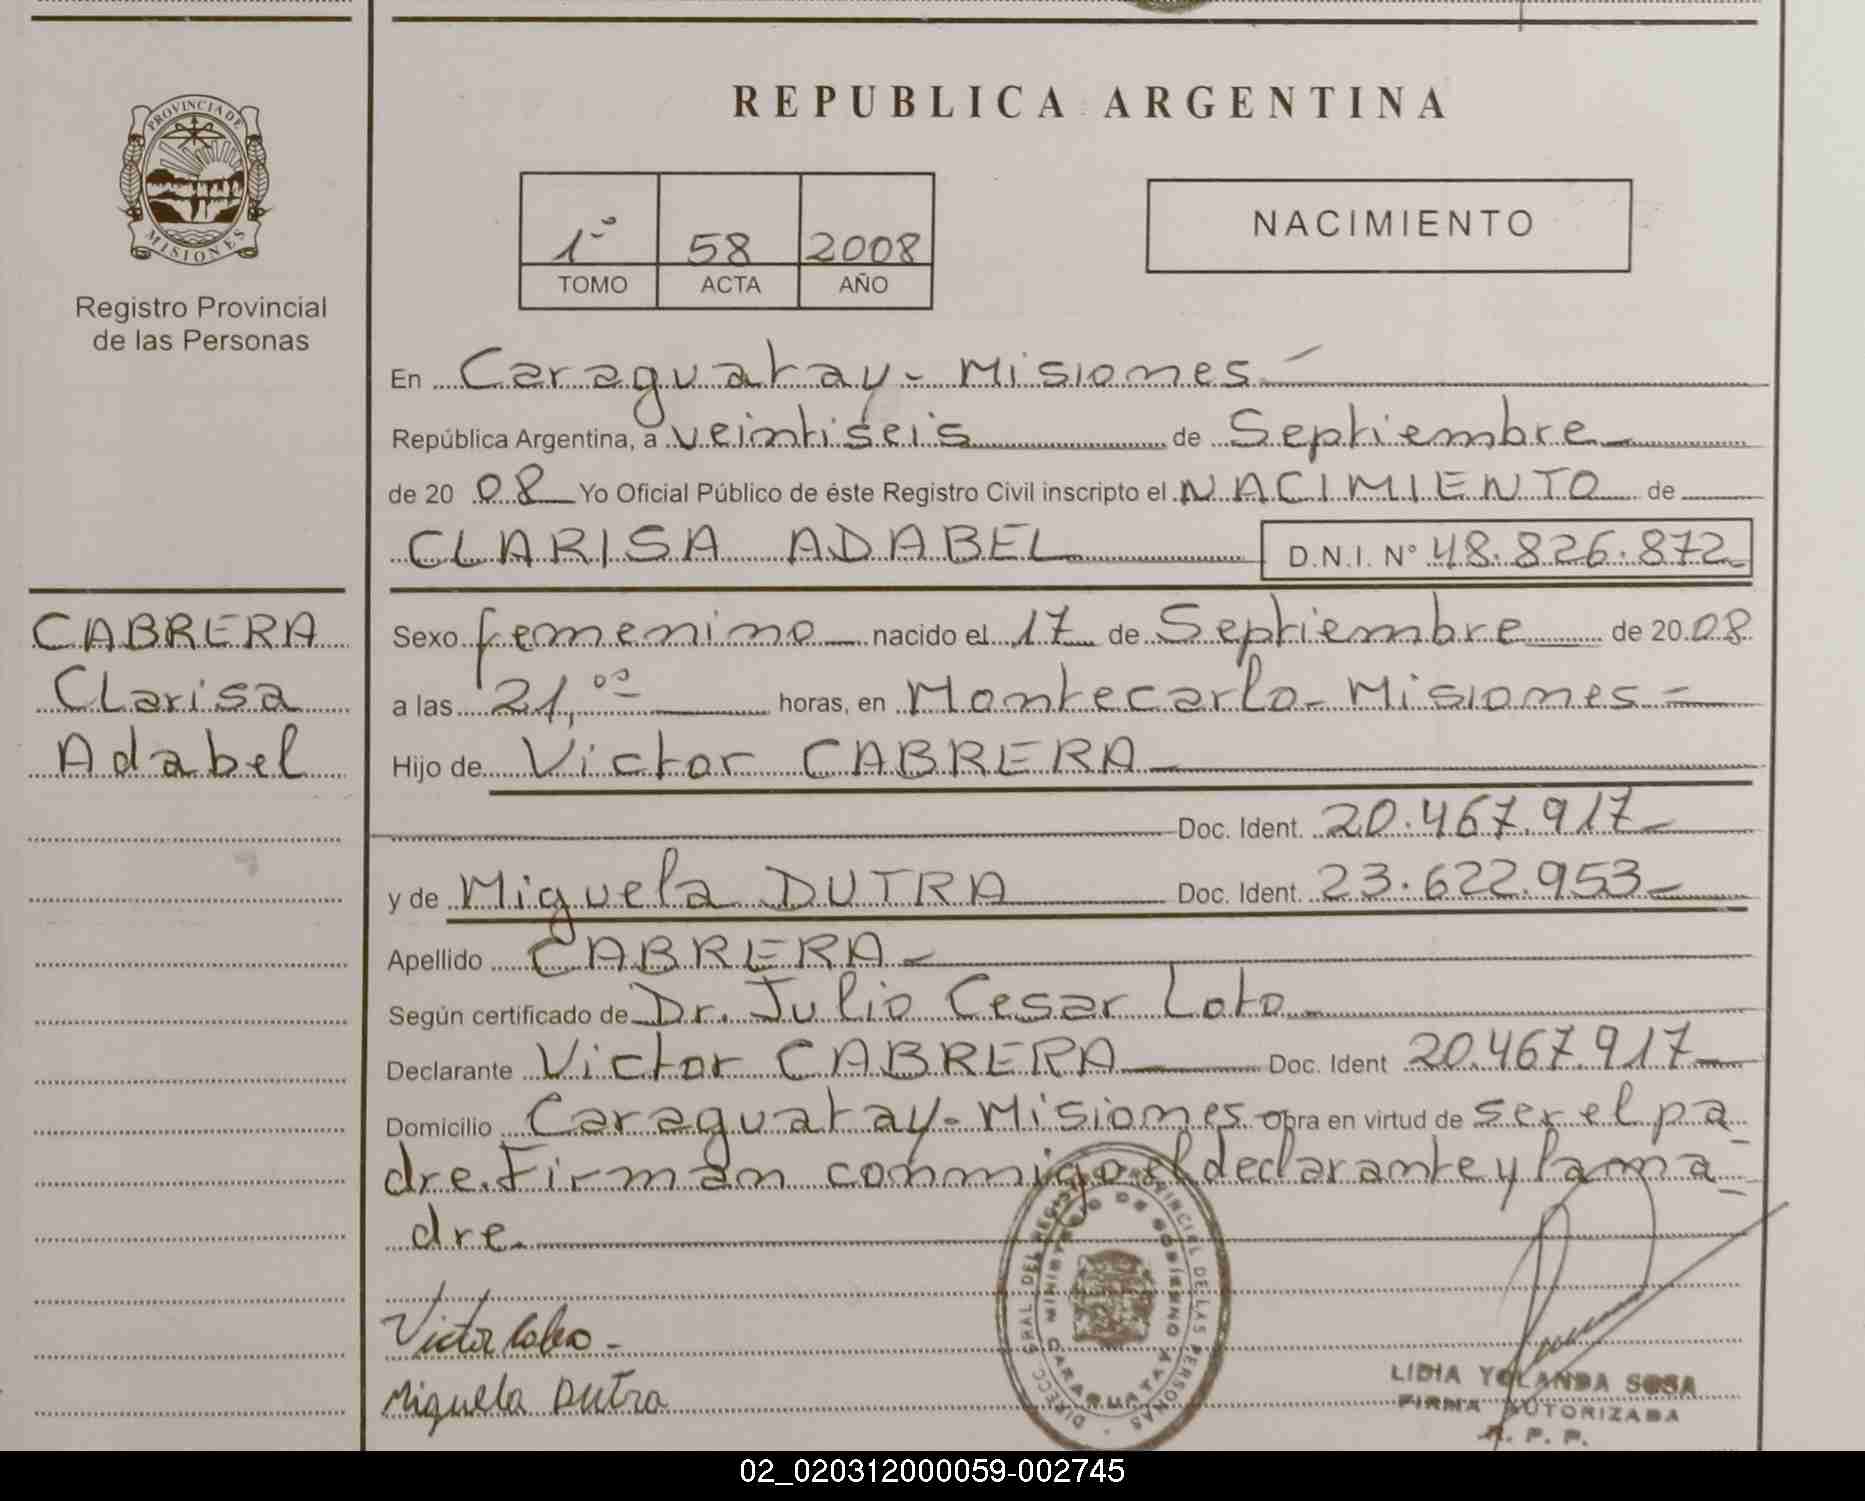 PROVINCIA DE
MISIONES
Registro Provincial
de las Personas
CABRERA
Clarisa
Adabel
REPUBLICA ARGENTINA
1º 58 2008
TOMO ACTA AÑO
NACIMIENTO
En Caraguatay - Misiones
República Argentina, a veintiseis de Septiembre
de 20 08 Yo Oficial Público de éste Registro Civil inscripto el NACIMIENTO de
CLARISA ADABEL D.N.I. Nº 48.826.872
Sexo femenino nacido el 17 de Septiembre de 20 08
a las 21,00 horas, en Montecarlo - Misiones
Hijo de Victor CABRERA
Doc. Ident. 20.467.917
y de Miguela DUTRA Doc. Ident. 23.622.953
Apellido CABRERA
Según certificado de Dr. Julio Cesar Loto
Declarante Victor CABRERA Doc. Ident 20.467.917
Domicilio Caraguatay - Misiones obra en virtud de ser el pa
dre. Firman conmigo el declarante y la ma
dre.
DIRECC. GRAL DEL REGISTRO PROVINCIAL DE LAS PERSONAS
MINISTERIO DE GOBIERNO
CARAGUATAY
Victor
Miguela Dutra
LIDIA YOLANDA SOSA
FIRMA AUTORIZADA
R. P. P.
02_020312000059-002745